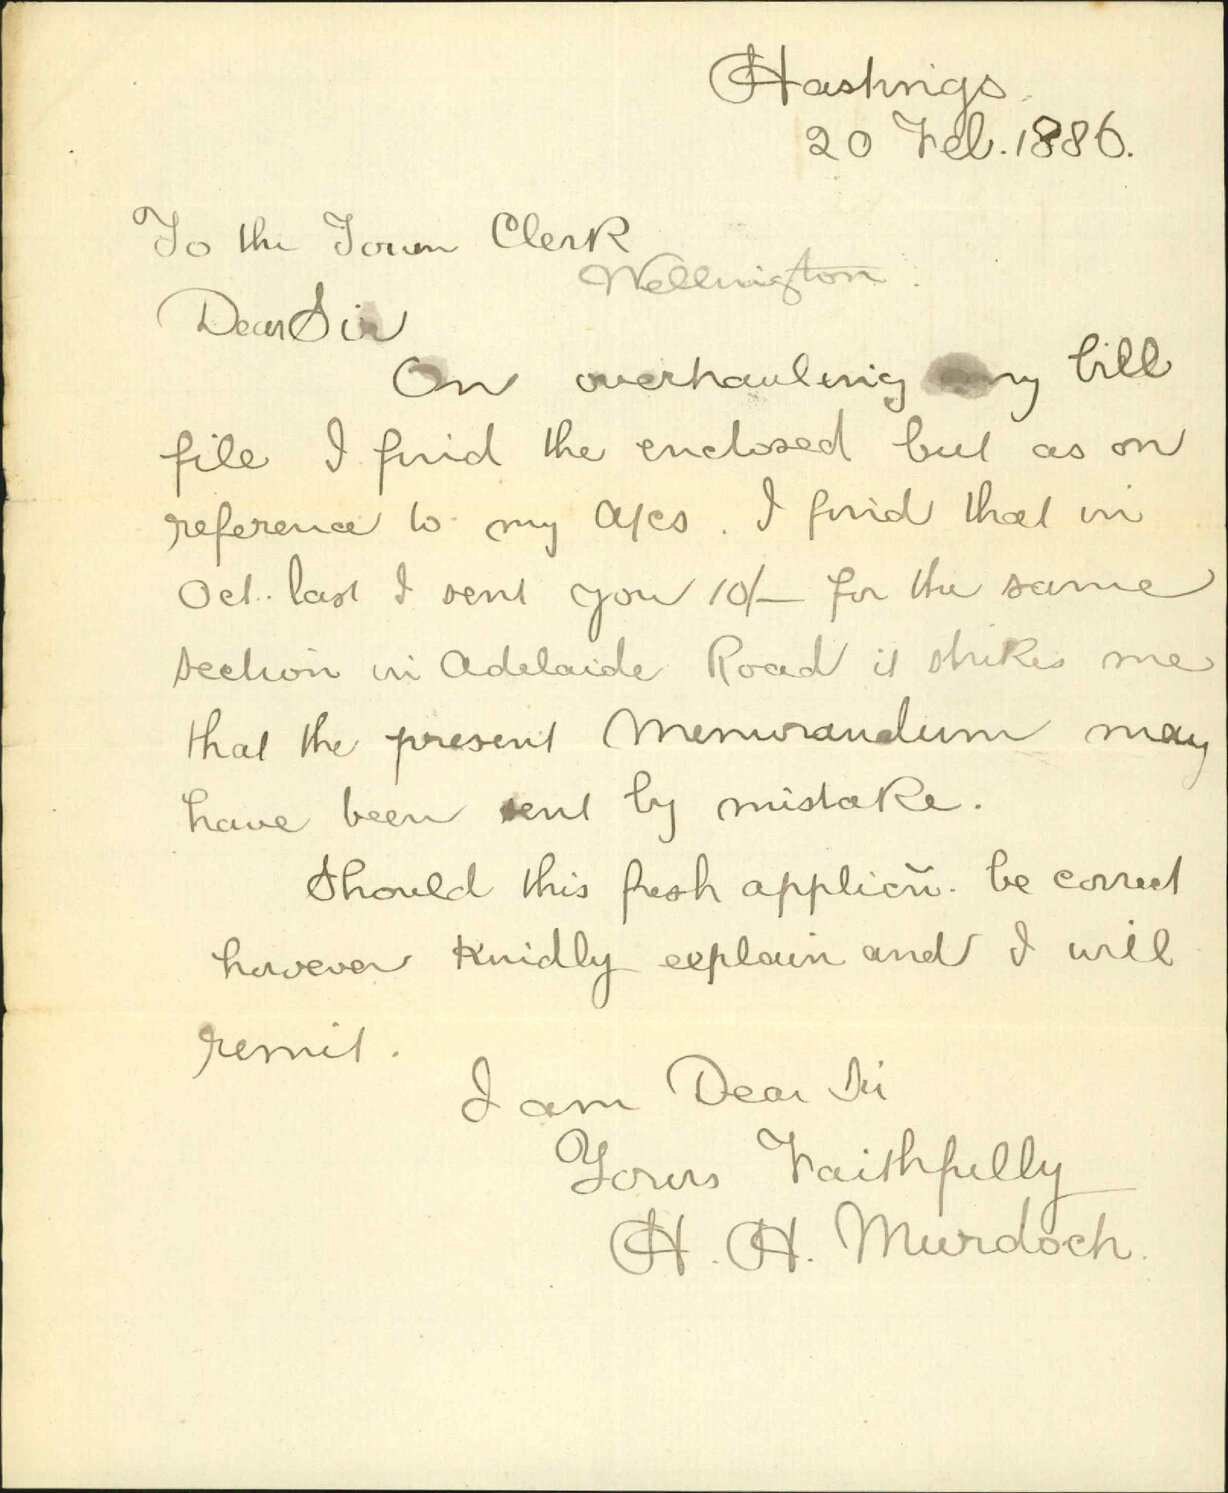 Hastings
20 Feb. 1886.
To the Town Clerk
Wellington.
Dear Sir
On overhauling my bill
file I find the enclosed but as on
reference to my a/cs. I find that in
Oct. last I sent you 10/- for the same
section in Adelaide Road it strikes me
that the present Memorandum may
have been sent by mistake.
Should this fresh applicn̄. be correct
however kindly explain and I will
remit.
I am Dear Sir
Yours Faithfully
H. H. Murdoch.